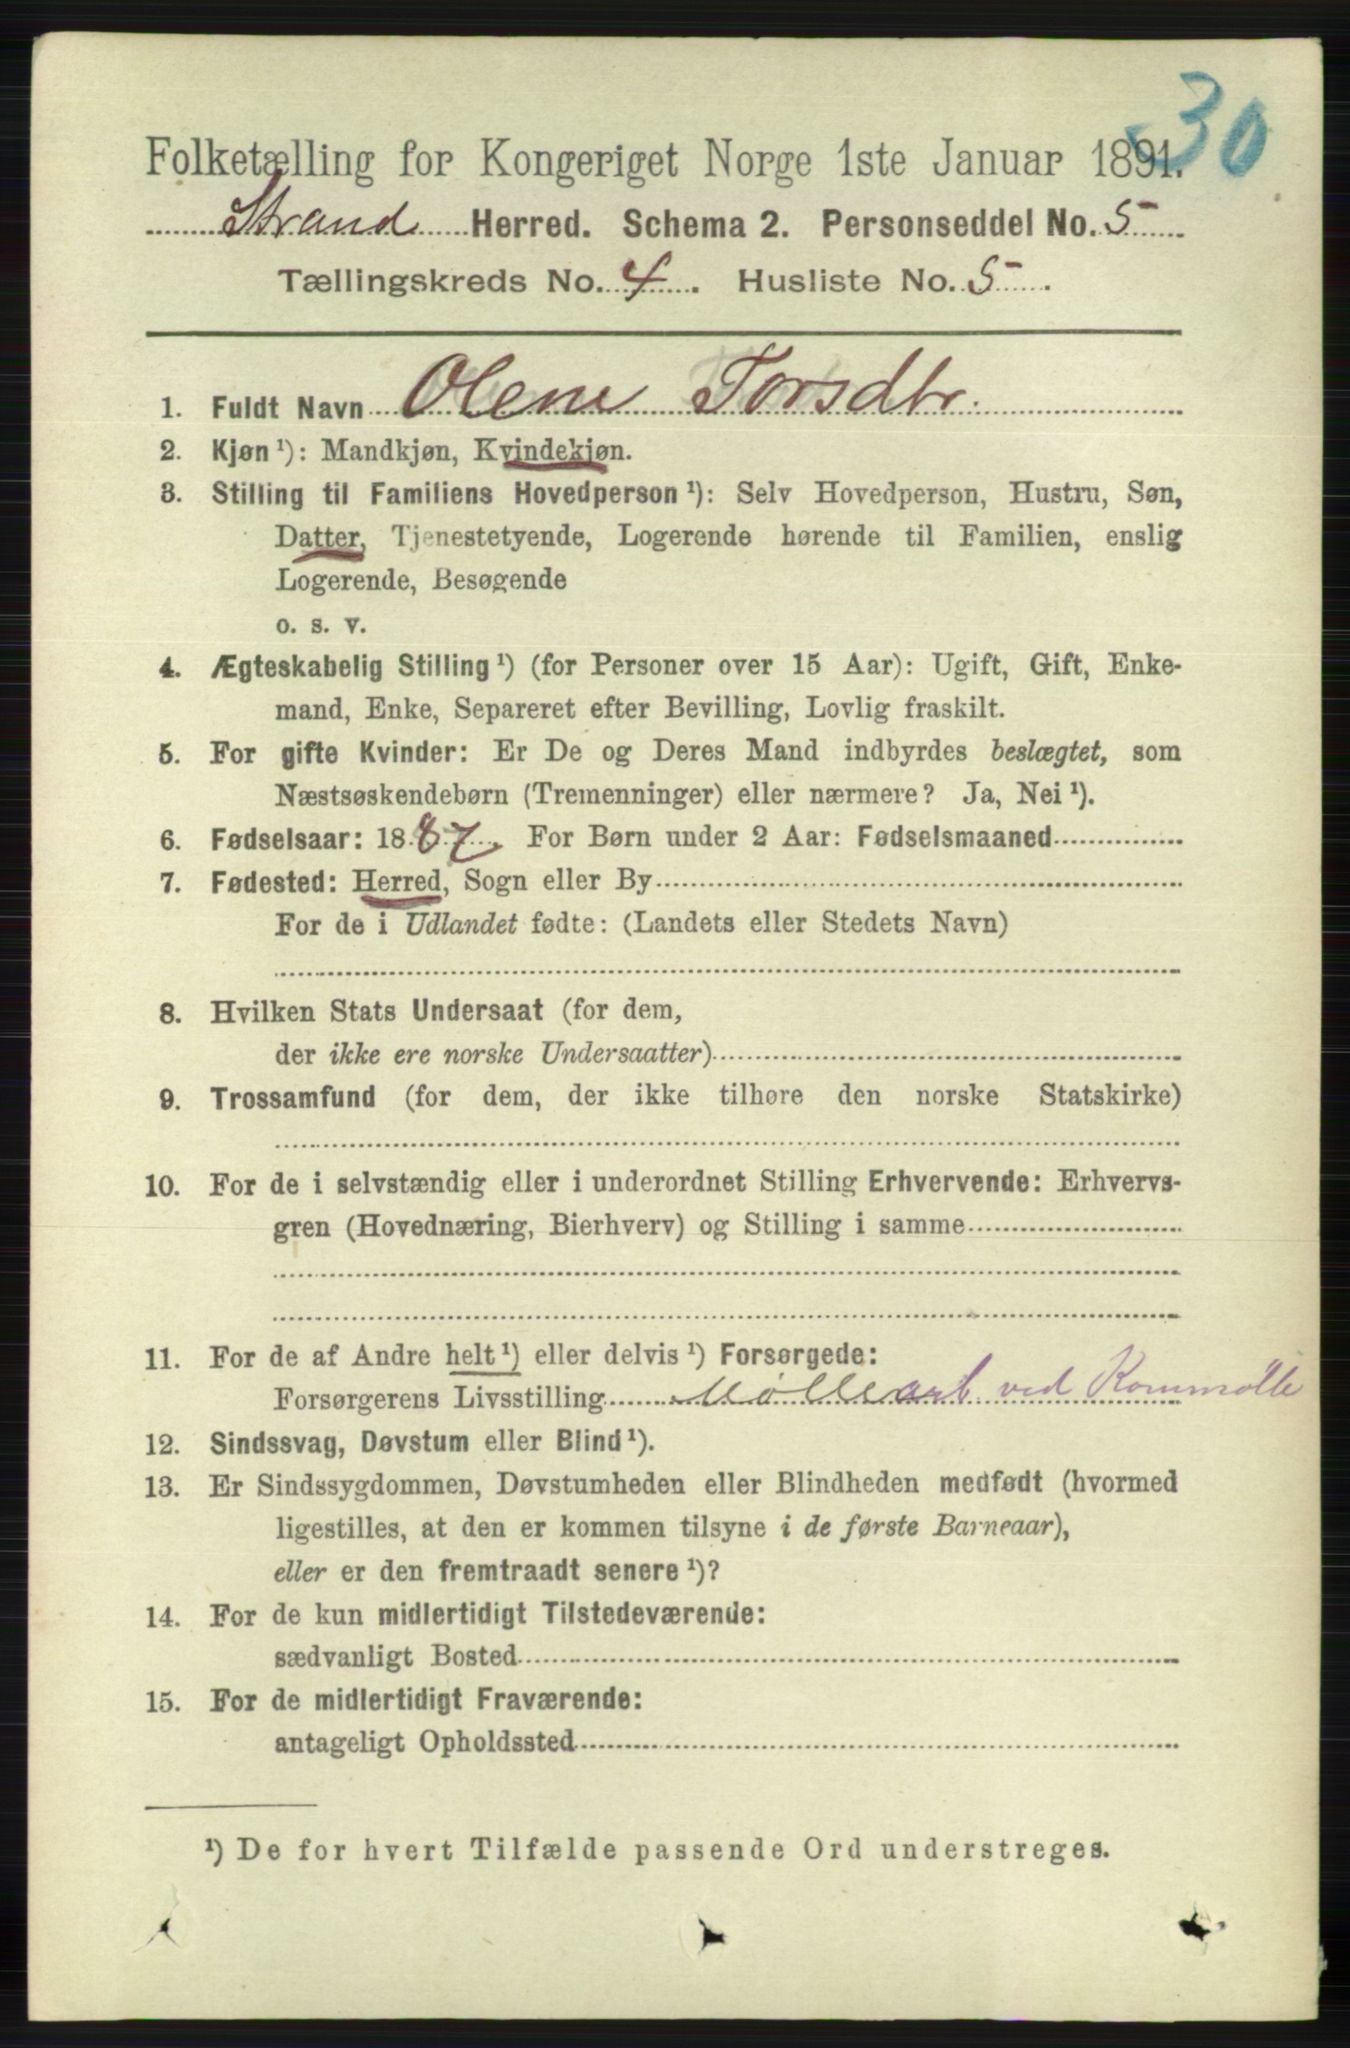 30
Folketælling for Kongeriget Norge 1ste Januar 1891.
Strand Herred. Schema 2. Personseddel No. 5
Tællingskreds No. 4. Husliste No. 5.
1. Fuldt Navn Olene Torsdtr.
2. Kjøn¹): Mandkjøn, Kvindekjøn.
3. Stilling til Familiens Hovedperson¹): Selv Hovedperson, Hustru, Søn,
Datter, Tjenestetyende, Logerende hørende til Familien, enslig
Logerende, Besøgende
o. s. v.
4. Ægteskabelig Stilling¹) (for Personer over 15 Aar): Ugift, Gift, Enke-
mand, Enke, Separeret efter Bevilling, Lovlig fraskilt.
5. For gifte Kvinder: Er De og Deres Mand indbyrdes beslægtet, som
Næstsøskendebørn (Tremenninger) eller nærmere? Ja, Nei¹).
6. Fødselsaar: 1887. For Børn under 2 Aar: Fødselsmaaned
7. Fødested: Herred, Sogn eller By
For de i Udlandet fødte: (Landets eller Stedets Navn)
8. Hvilken Stats Undersaat (for dem,
der ikke ere norske Undersaatter)
9. Trossamfund (for dem, der ikke tilhøre den norske Statskirke)
10. For de i selvstændig eller i underordnet Stilling Erhvervende: Erhvervs-
gren (Hovednæring, Bierhverv) og Stilling i samme
11. For de af Andre helt¹) eller delvis¹) Forsørgede:
Forsørgerens Livsstilling Møllearb. ved Kornmølle
12. Sindssvag, Døvstum eller Blind¹).
13. Er Sindssygdommen, Døvstumheden eller Blindheden medfødt (hvormed
ligestilles, at den er kommen tilsyne i de første Barneaar),
eller er den fremtraadt senere¹)?
14. For de kun midlertidigt Tilstedeværende:
sædvanligt Bosted
15. For de midlertidigt Fraværende:
antageligt Opholdssted
¹) De for hvert Tilfælde passende Ord understreges.